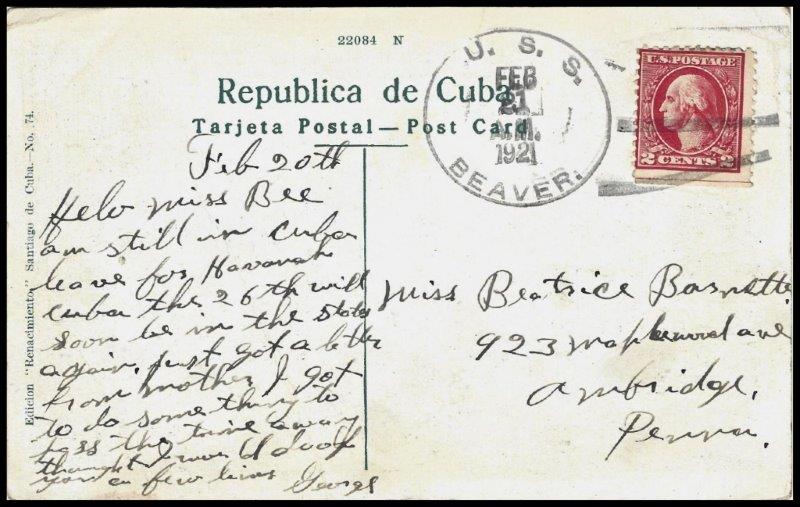 22084 N
U. S. S.
FEB
21
A.M.
1921
BEAVER.
U.S. POSTAGE
2 CENTS 2
Republica de Cuba
Tarjeta Postal — Post Card
Edicion "Renacimiento" Santiago de Cuba.—No. 74.
Feb 20th
Helo Miss Bee
am still in Cuba
leave for Havanah
Cuba the 26th will
soon be in the states
again, just got a letter
from mother, I got
to do some thing to
pass the time away
thought I would drop
you a few lines
George
Miss Beatrice
923 Maplewood ave
Ambridge,
Penna.